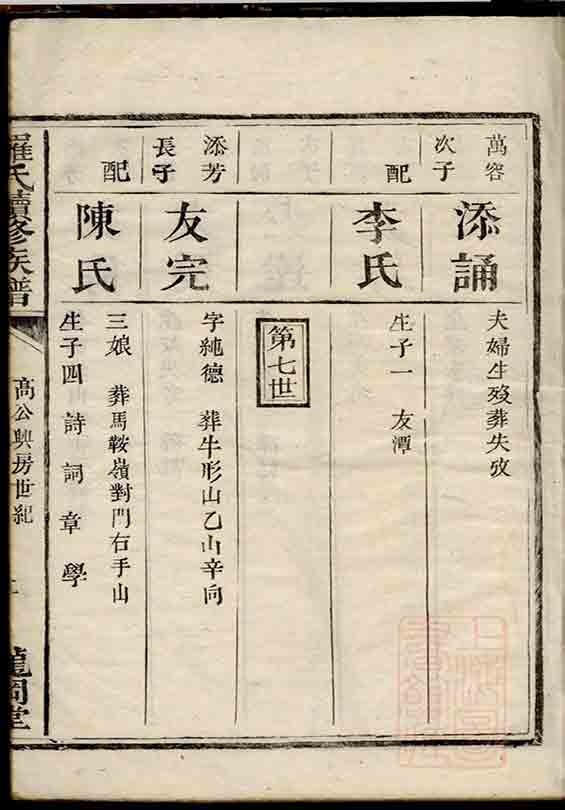 萬容
次子
添誦
夫婦生歿葬失攷
配
李氏
生子一 友潭
第七世
添芳
長子
友完
字純德 葬牛形山乙山辛向
配
陳氏
三娘 葬馬鞍嶺對門右手山
生子四 詩詞章學
羅氏續修族譜
高公興房世紀
龍岡堂